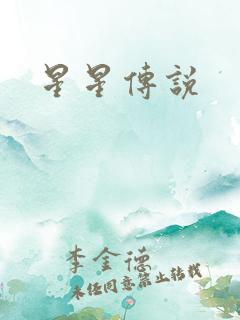 星星傳說
李金德
未经同意禁止转载